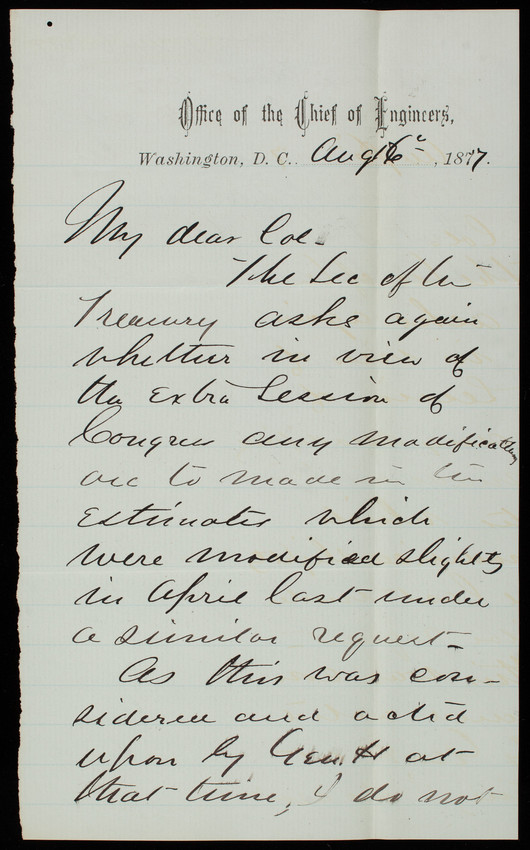 Office of the Chief of Engineers,
Washington, D. C. Aug 6, 1877.
My dear Col.
The Sec of the
Treasury asks again
whether in view of
the Extra Session of
Congress any modifications
are to made in the
Estimates which
were modified slightly
in April last under
a similar request—
As this was con-
sidered and acted
upon by Gen H at
that time, I do not